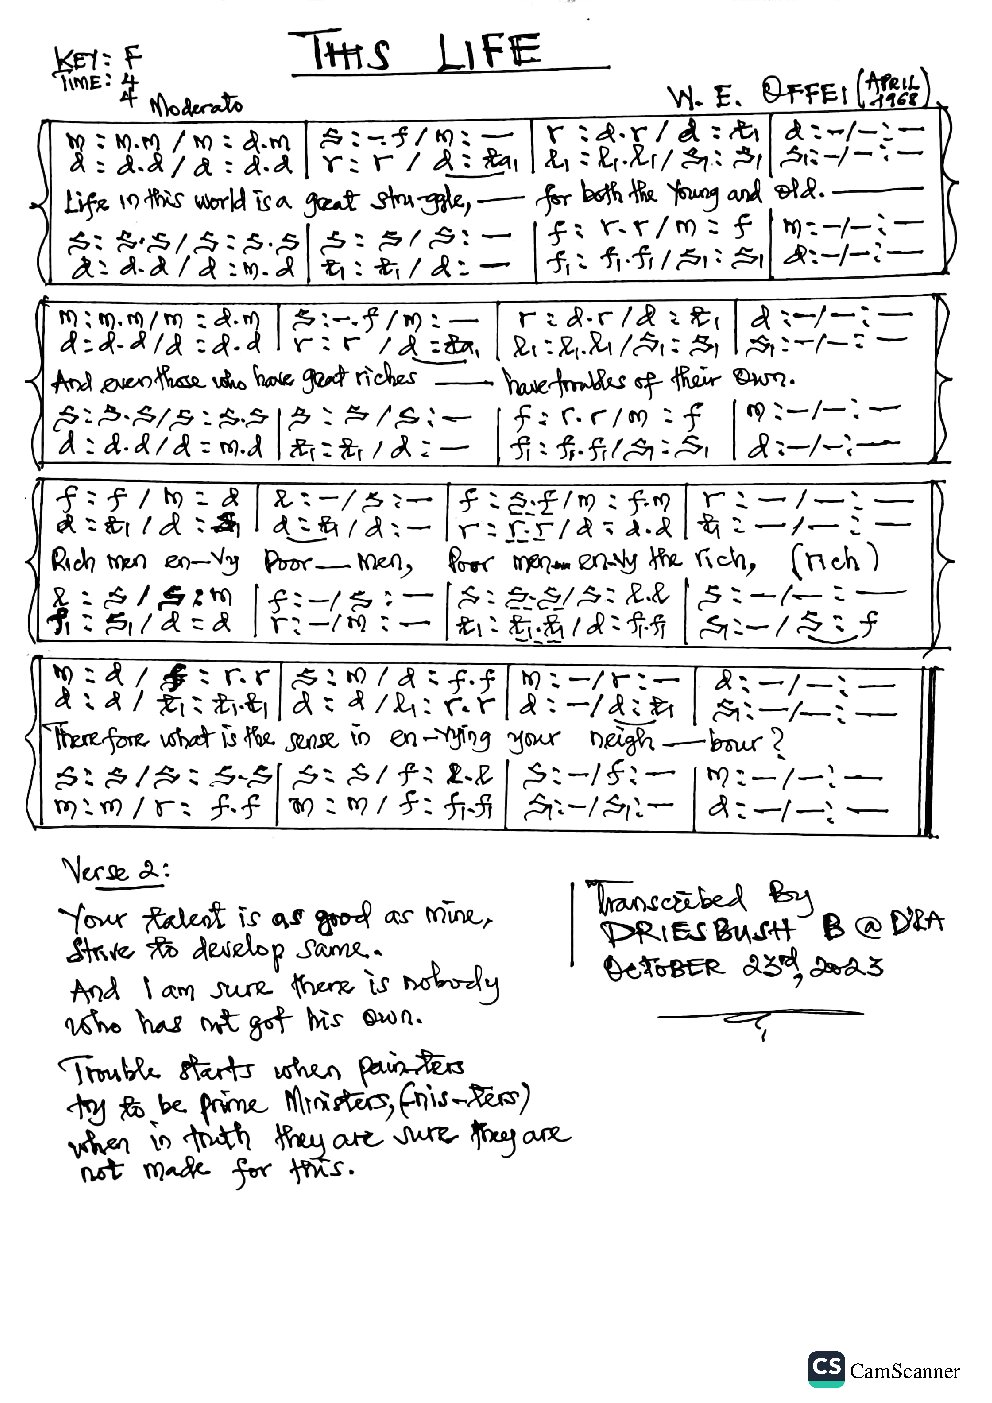 THIS LIFE
KEY: F
TIME: 4/4
Moderato
W. E. OFFEI (APRIL 1968)
m : m.m / m : d.m | s :-. f / m : — | r : d.r / d : t₁ | d :-/-: —
d : d.d / d : d.d | r : r / d : ta₁ | l₁ : l₁.l₁ / s₁ : s₁ | s₁ :-/-: —
Life in this world is a great stru-ggle, — for both the Young and old. —
s : s.s / s : s.s | s : s / s : — | f : r.r / m : f | m :-/-: —
d : d.d / d : m.d | t₁ : t₁ / d : — | f₁ : f₁.f₁ / s₁ : s₁ | d :-/-: —
m : m.m / m : d.m | s :-. f / m : — | r : d.r / d : t₁ | d :-/-: —
d : d.d / d : d.d | r : r / d : ta₁ | l₁ : l₁.l₁ / s₁ : s₁ | s₁ :-/-: —
And even those who have great riches — have troubles of their own.
s : s.s / s : s.s | s : s / s : — | f : r.r / m : f | m :-/-: —
d : d.d / d : m.d | t₁ : t₁ / d : — | f₁ : f₁.f₁ / s₁ : s₁ | d :-/-: —
f : f / m : d | l :-/ s : — | f : s.f / m : f.m | r : — / — : —
d : t₁ / d : s₁ | d : t₁ / d : — | r : r.r / d : d.d | t₁ : — / — : —
Rich men en-vy Poor — men, Poor men en-vy the rich, (rich)
l : s / s : m | f :-/ s : — | s : s.s / s : l.l | s : — / — : —
f₁ : s₁ / d : d | r :-/ m : — | t₁ : t₁.t₁ / d : f₁.f₁ | s₁ :-/ s : f
m : d / f : r.r | s : m / d : f.f | m :-/ r : — | d : — / — : —
d : d / t₁ : t₁.t₁ | d : d / l₁ : r.r | d :-/ d : t₁ | s₁ : — / — : —
Therefore what is the sense in en-vying your neigh — bour?
s : s / s : s.s | s : s / f : l.l | s :-/ f : — | m : — / — : —
m : m / r : f.f | m : m / f : f₁.f₁ | s₁ :-/ s₁ : — | d : — / — : —
Verse 2:
Your talent is as good as mine,
Strive to develop same.
And I am sure there is nobody
who has not got his own.
Trouble starts when pain-ters
try to be prime Ministers, (-nis-ters)
when in truth they are sure they are
not made for this.
Transcribed By
DRIESBUSH B @ D'LA
OCTOBER 23rd, 2023
CS CamScanner